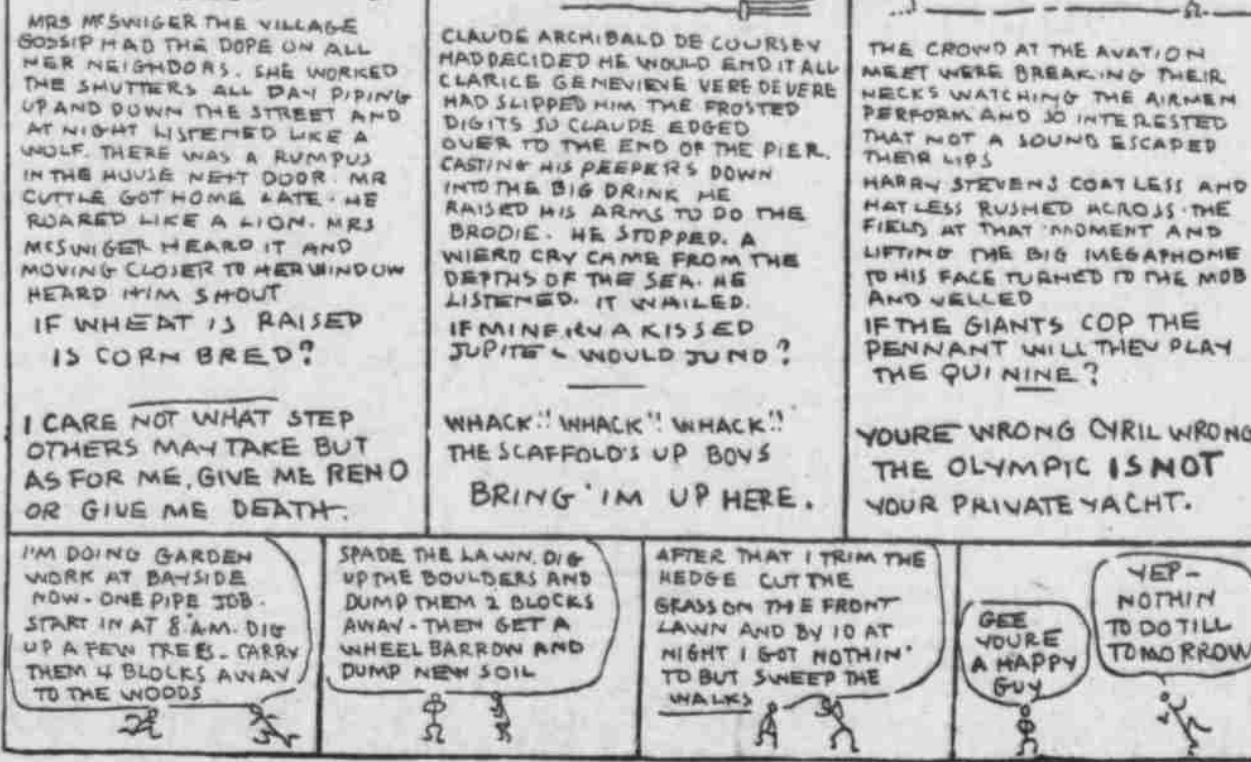 MRS McSWIGER THE VILLAGE
GOSSIP HAD THE DOPE ON ALL
HER NEIGHBORS. SHE WORKED
THE SHUTTERS ALL DAY PIPING
UP AND DOWN THE STREET AND
AT NIGHT LISTENED LIKE A
WOLF. THERE WAS A RUMPUS
IN THE HOUSE NEXT DOOR. MR
CUTTLE GOT HOME LATE. HE
ROARED LIKE A LION. MRS
McSWIGER HEARD IT AND
MOVING CLOSER TO HER WINDOW
HEARD HIM SHOUT
IF WHEAT IS RAISED
IS CORN BRED?
I CARE NOT WHAT STEP
OTHERS MAY TAKE BUT
AS FOR ME, GIVE ME RENO
OR GIVE ME DEATH.
CLAUDE ARCHIBALD DE COURSEY
HAD DECIDED HE WOULD END IT ALL
CLARICE GENEVIEVE VERE DEVERE
HAD SLIPPED HIM THE FROSTED
DIGITS SO CLAUDE EDGED
OVER TO THE END OF THE PIER.
CASTING HIS PEEPERS DOWN
INTO THE BIG DRINK HE
RAISED HIS ARMS TO DO THE
BRODIE. HE STOPPED. A
WIERD CRY CAME FROM THE
DEPTHS OF THE SEA. HE
LISTENED. IT WAILED.
IF MINERVA KISSED
JUPITER WOULD JUNO?
WHACK!! WHACK!! WHACK!!
THE SCAFFOLD'S UP BOYS
BRING 'IM UP HERE.
THE CROWD AT THE AVATION
MEET WERE BREAKING THEIR
NECKS WATCHING THE AIRMEN
PERFORM AND SO INTERESTED
THAT NOT A SOUND ESCAPED
THEIR LIPS
HARRY STEVENS COATLESS AND
HATLESS RUSHED ACROSS THE
FIELD AT THAT MOMENT AND
LIFTING THE BIG MEGAPHONE
TO HIS FACE TURNED TO THE MOB
AND YELLED
IF THE GIANTS COP THE
PENNANT WILL THEY PLAY
THE QUI NINE?
YOURE WRONG CYRIL WRONG
THE OLYMPIC IS NOT
YOUR PRIVATE YACHT.
I'M DOING GARDEN
WORK AT BAYSIDE
NOW - ONE PIPE JOB.
START IN AT 8 A.M. DIG
UP A FEW TREES - CARRY
THEM 4 BLOCKS AWAY
TO THE WOODS
SPADE THE LAWN. DIG
UP THE BOULDERS AND
DUMP THEM 2 BLOCKS
AWAY - THEN GET A
WHEEL BARROW AND
DUMP NEW SOIL
AFTER THAT I TRIM THE
HEDGE CUT THE
GRASS ON THE FRONT
LAWN AND BY 10 AT
NIGHT I GOT NOTHIN'
TO BUT SWEEP THE
WALKS
GEE
YOURE
A HAPPY
GUY
YEP-
NOTHIN
TO DO TILL
TOMORROW